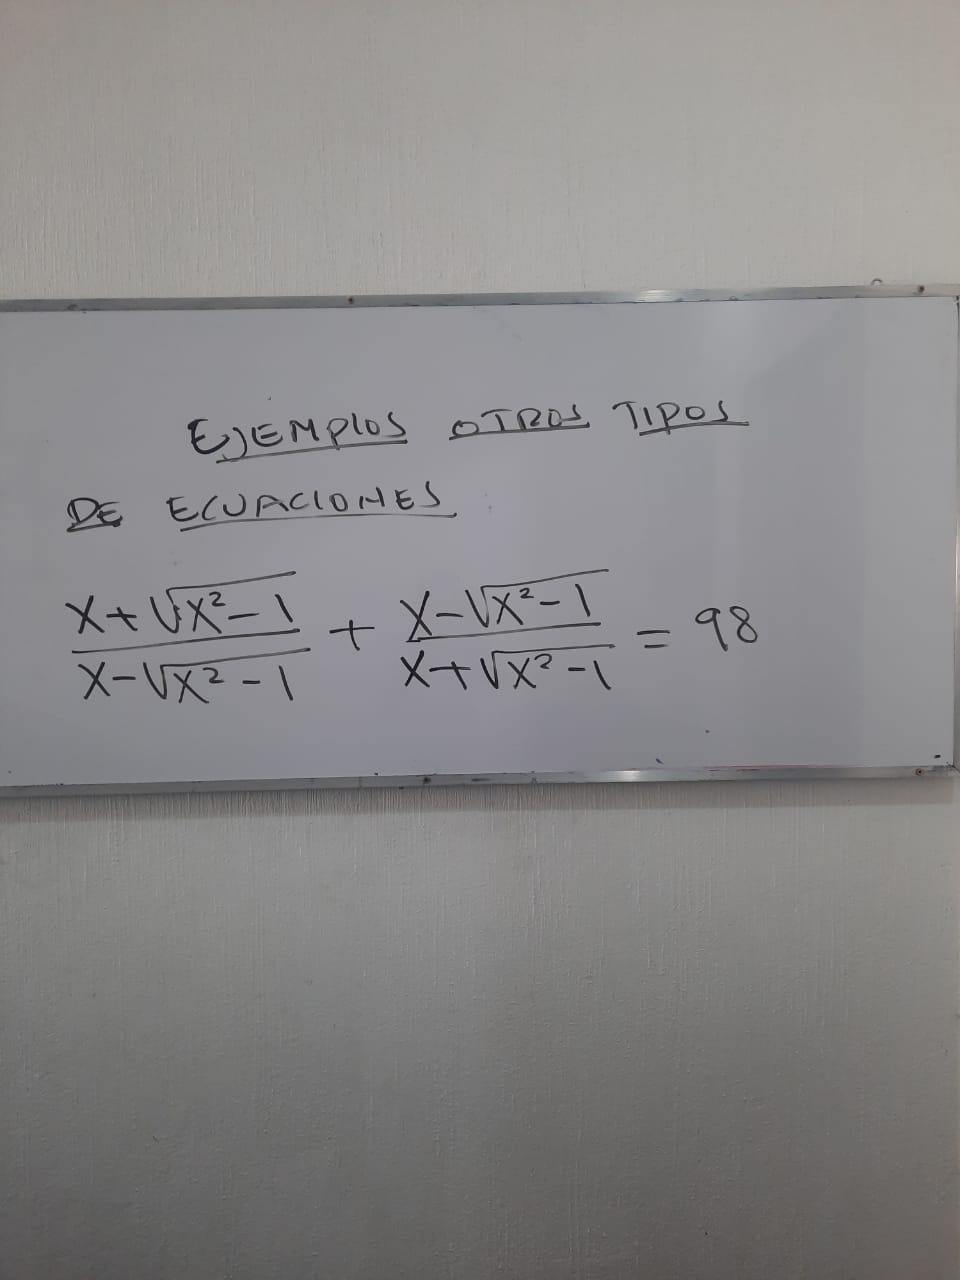 EJEMPLOS OTROS TIPOS
DE ECUACIONES
\frac{X+\sqrt{X^2-1}}{X-\sqrt{X^2-1}} + \frac{X-\sqrt{X^2-1}}{X+\sqrt{X^2-1}} = 98